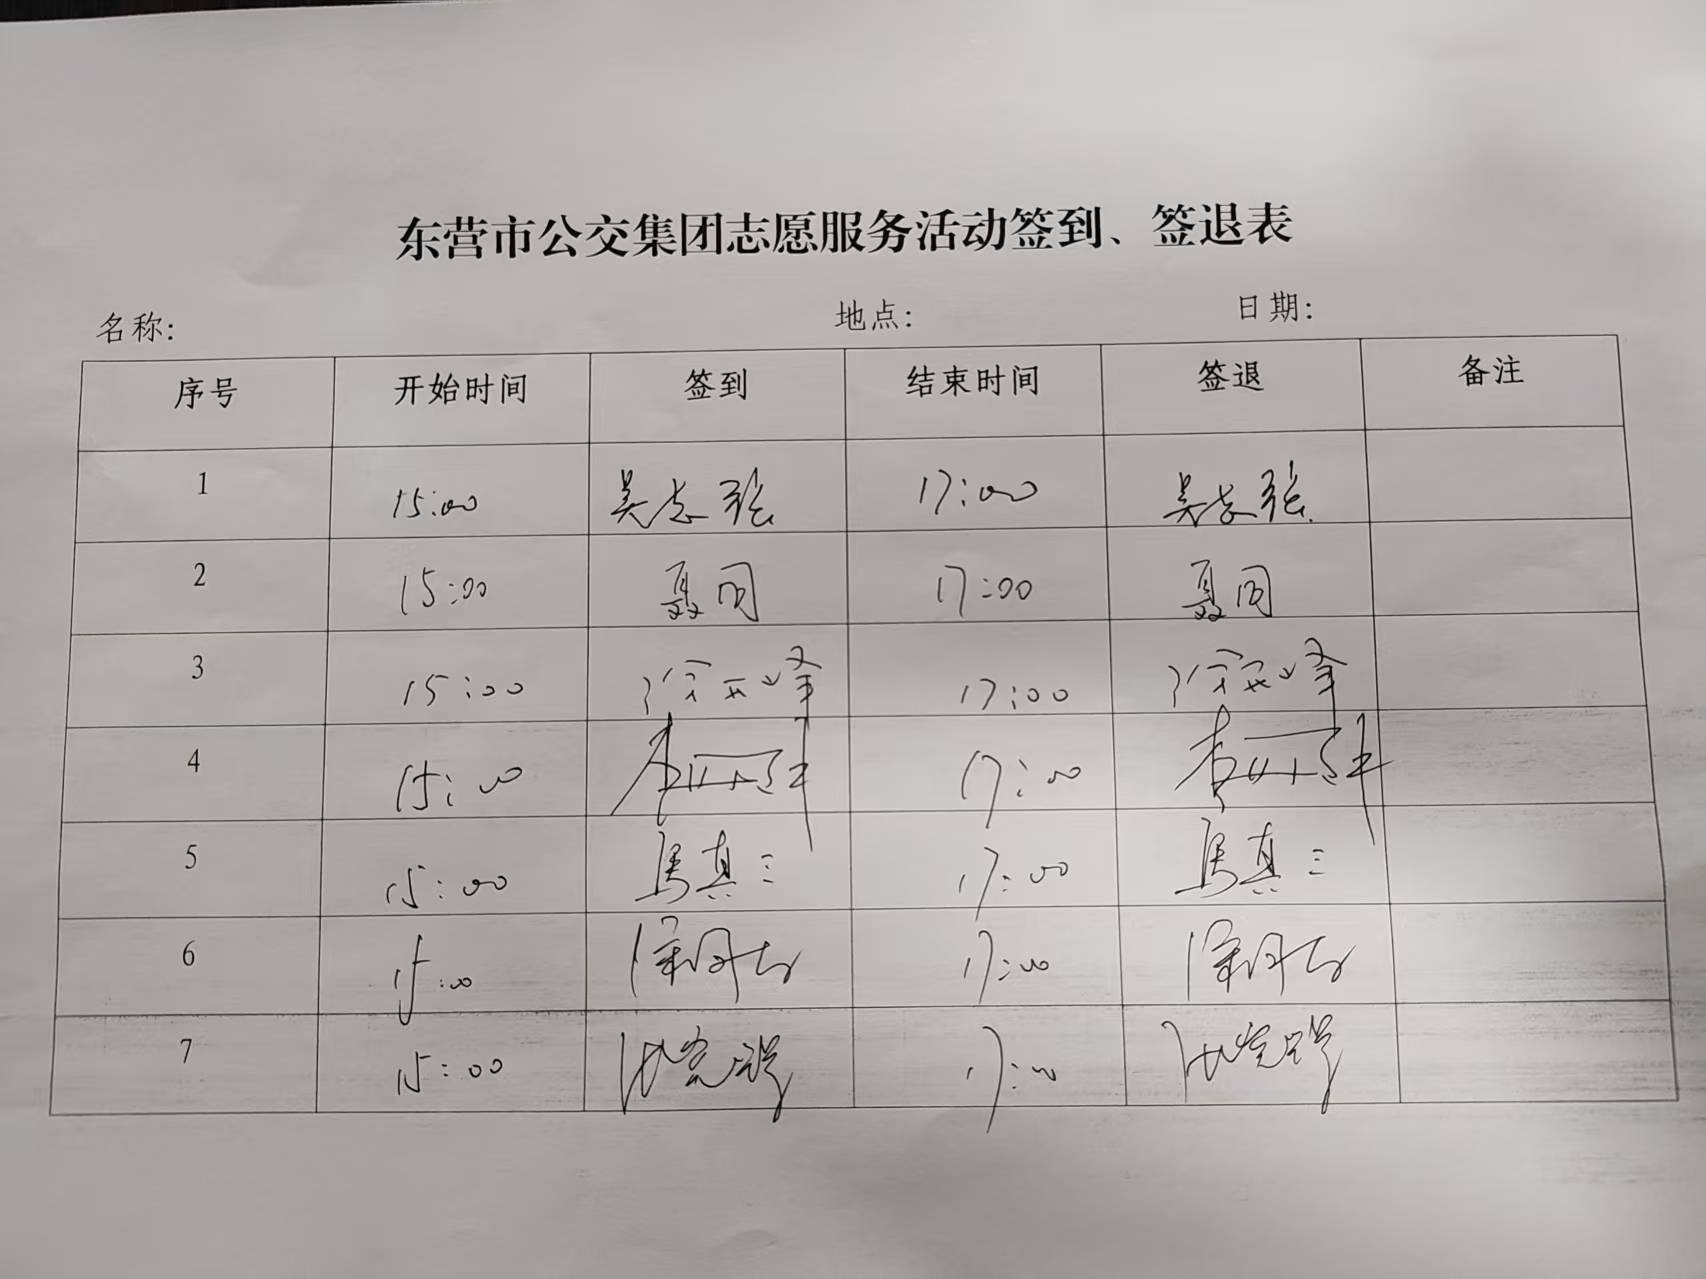 东营市公交集团志愿服务活动签到、签退表
名称: 地点: 日期:
序号 开始时间 签到 结束时间 签退 备注
1 15:00 吴志强 17:00 吴志强
2 15:00 聂同 17:00 聂同
3 15:00 17:00
4 15:00 17:00
5 15:00 马真三 17:00 马真三
6 15:00 17:00
7 15:00 17:00